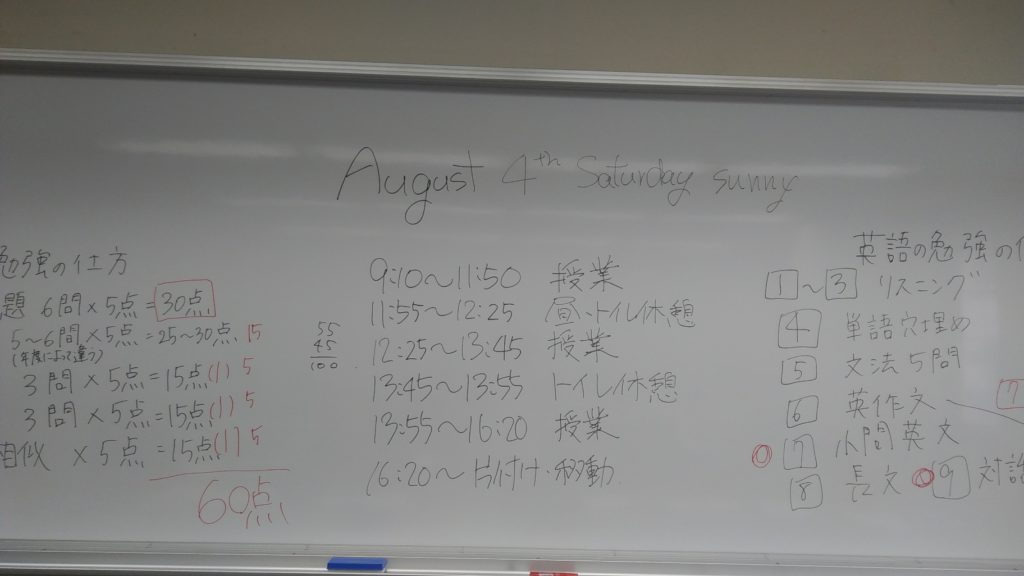 August 4th Saturday sunny
勉強の仕方
題 6問×5点=30点
5〜6問×5点=25〜30点 15
(年度によって違う)
3問×5点=15点(1) 5
3問×5点=15点(1) 5
相似 ×5点=15点(1) 5
60点
55
45
100
9:10〜11:50 授業
11:55〜12:25 昼・トイレ休憩
12:25〜13:45 授業
13:45〜13:55 トイレ休憩
13:55〜16:20 授業
16:20〜片付け・移動
英語の勉強の
1〜3 リスニング
4 単語穴埋め
5 文法5問
6 英作文
7
7 小問英文
8 長文 9 対話